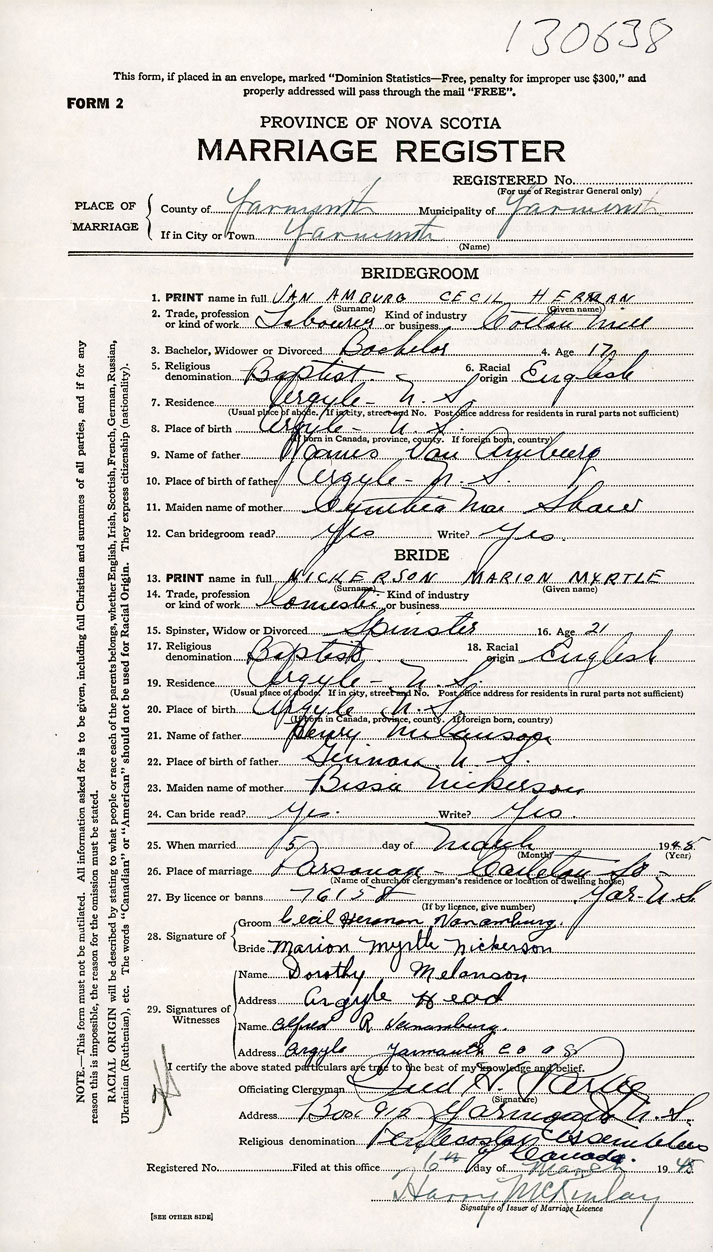 130638
This form, if placed in an envelope, marked "Dominion Statistics—Free, penalty for improper use $300," and
properly addressed will pass through the mail "FREE".
FORM 2
PROVINCE OF NOVA SCOTIA
MARRIAGE REGISTER
REGISTERED No.
(For use of Registrar General only)
PLACE OF MARRIAGE
County of Yarmouth Municipality of Yarmouth
If in City or Town Yarmouth
(Name)
BRIDEGROOM
1. PRINT name in full VAN AMBURG CECIL HERMAN
(Surname) (Given name)
2. Trade, profession or kind of work Labourer Kind of industry or business Cotton Mill
3. Bachelor, Widower or Divorced Bachelor 4. Age 17
5. Religious denomination Baptist 6. Racial origin English
7. Residence Argyle - N.S.
(Usual place of abode. If in city, street and No. Post office address for residents in rural parts not sufficient)
8. Place of birth Argyle - N.S.
(If born in Canada, province, county. If foreign born, country)
9. Name of father Van Amburg
10. Place of birth of father Argyle - N.S.
11. Maiden name of mother Cynthia Mae Shaw
12. Can bridegroom read? Yes Write? Yes.
BRIDE
13. PRINT name in full NICKERSON MARION MYRTLE
(Surname) (Given name)
14. Trade, profession or kind of work Domestic Kind of industry or business
15. Spinster, Widow or Divorced Spinster 16. Age 21
17. Religious denomination Baptist. 18. Racial origin English
19. Residence Argyle - N.S.
(Usual place of abode. If in city, street and No. Post office address for residents in rural parts not sufficient)
20. Place of birth Argyle N.S.
(If born in Canada, province, county. If foreign born, country)
21. Name of father Henry Melanson
22. Place of birth of father N.S.
23. Maiden name of mother Nickerson
24. Can bride read? Yes. Write? Yes.
25. When married 5 day of March 1945
(Month) (Year)
26. Place of marriage Parsonage - Carleton St. - Yar - N.S.
(Name of church or clergyman's residence or location of dwelling house)
27. By licence or banns 76158
(If by licence, give number)
28. Signature of
Groom Cecil Herman Vanamburg.
Bride Marion Myrtle Nickerson
29. Signatures of Witnesses
Name Dorothy Melanson
Address Argyle Head
Name Alfred R Vanamburg.
Address Argyle Yarmouth Co
I certify the above stated particulars are true to the best of my knowledge and belief.
Officiating Clergyman
(Signature)
Address Box 912 Yarmouth N.S.
Religious denomination Pentecostal Assemblies of Canada.
Registered No. Filed at this office 6th day of March 1945
Harry McKinlay
Signature of Issuer of Marriage Licence
[SEE OTHER SIDE]
NOTE.—This form must not be mutilated. All information asked for is to be given, including full Christian and surnames of all parties, and if for any
reason this is impossible, the reason for the omission must be stated.
RACIAL ORIGIN will be described by stating to what people or race each of the parents belongs, whether English, Irish, Scottish, French, German, Russian,
Ukrainian (Ruthenian), etc. The words "Canadian" or "American" should not be used for Racial Origin. They express citizenship (nationality).